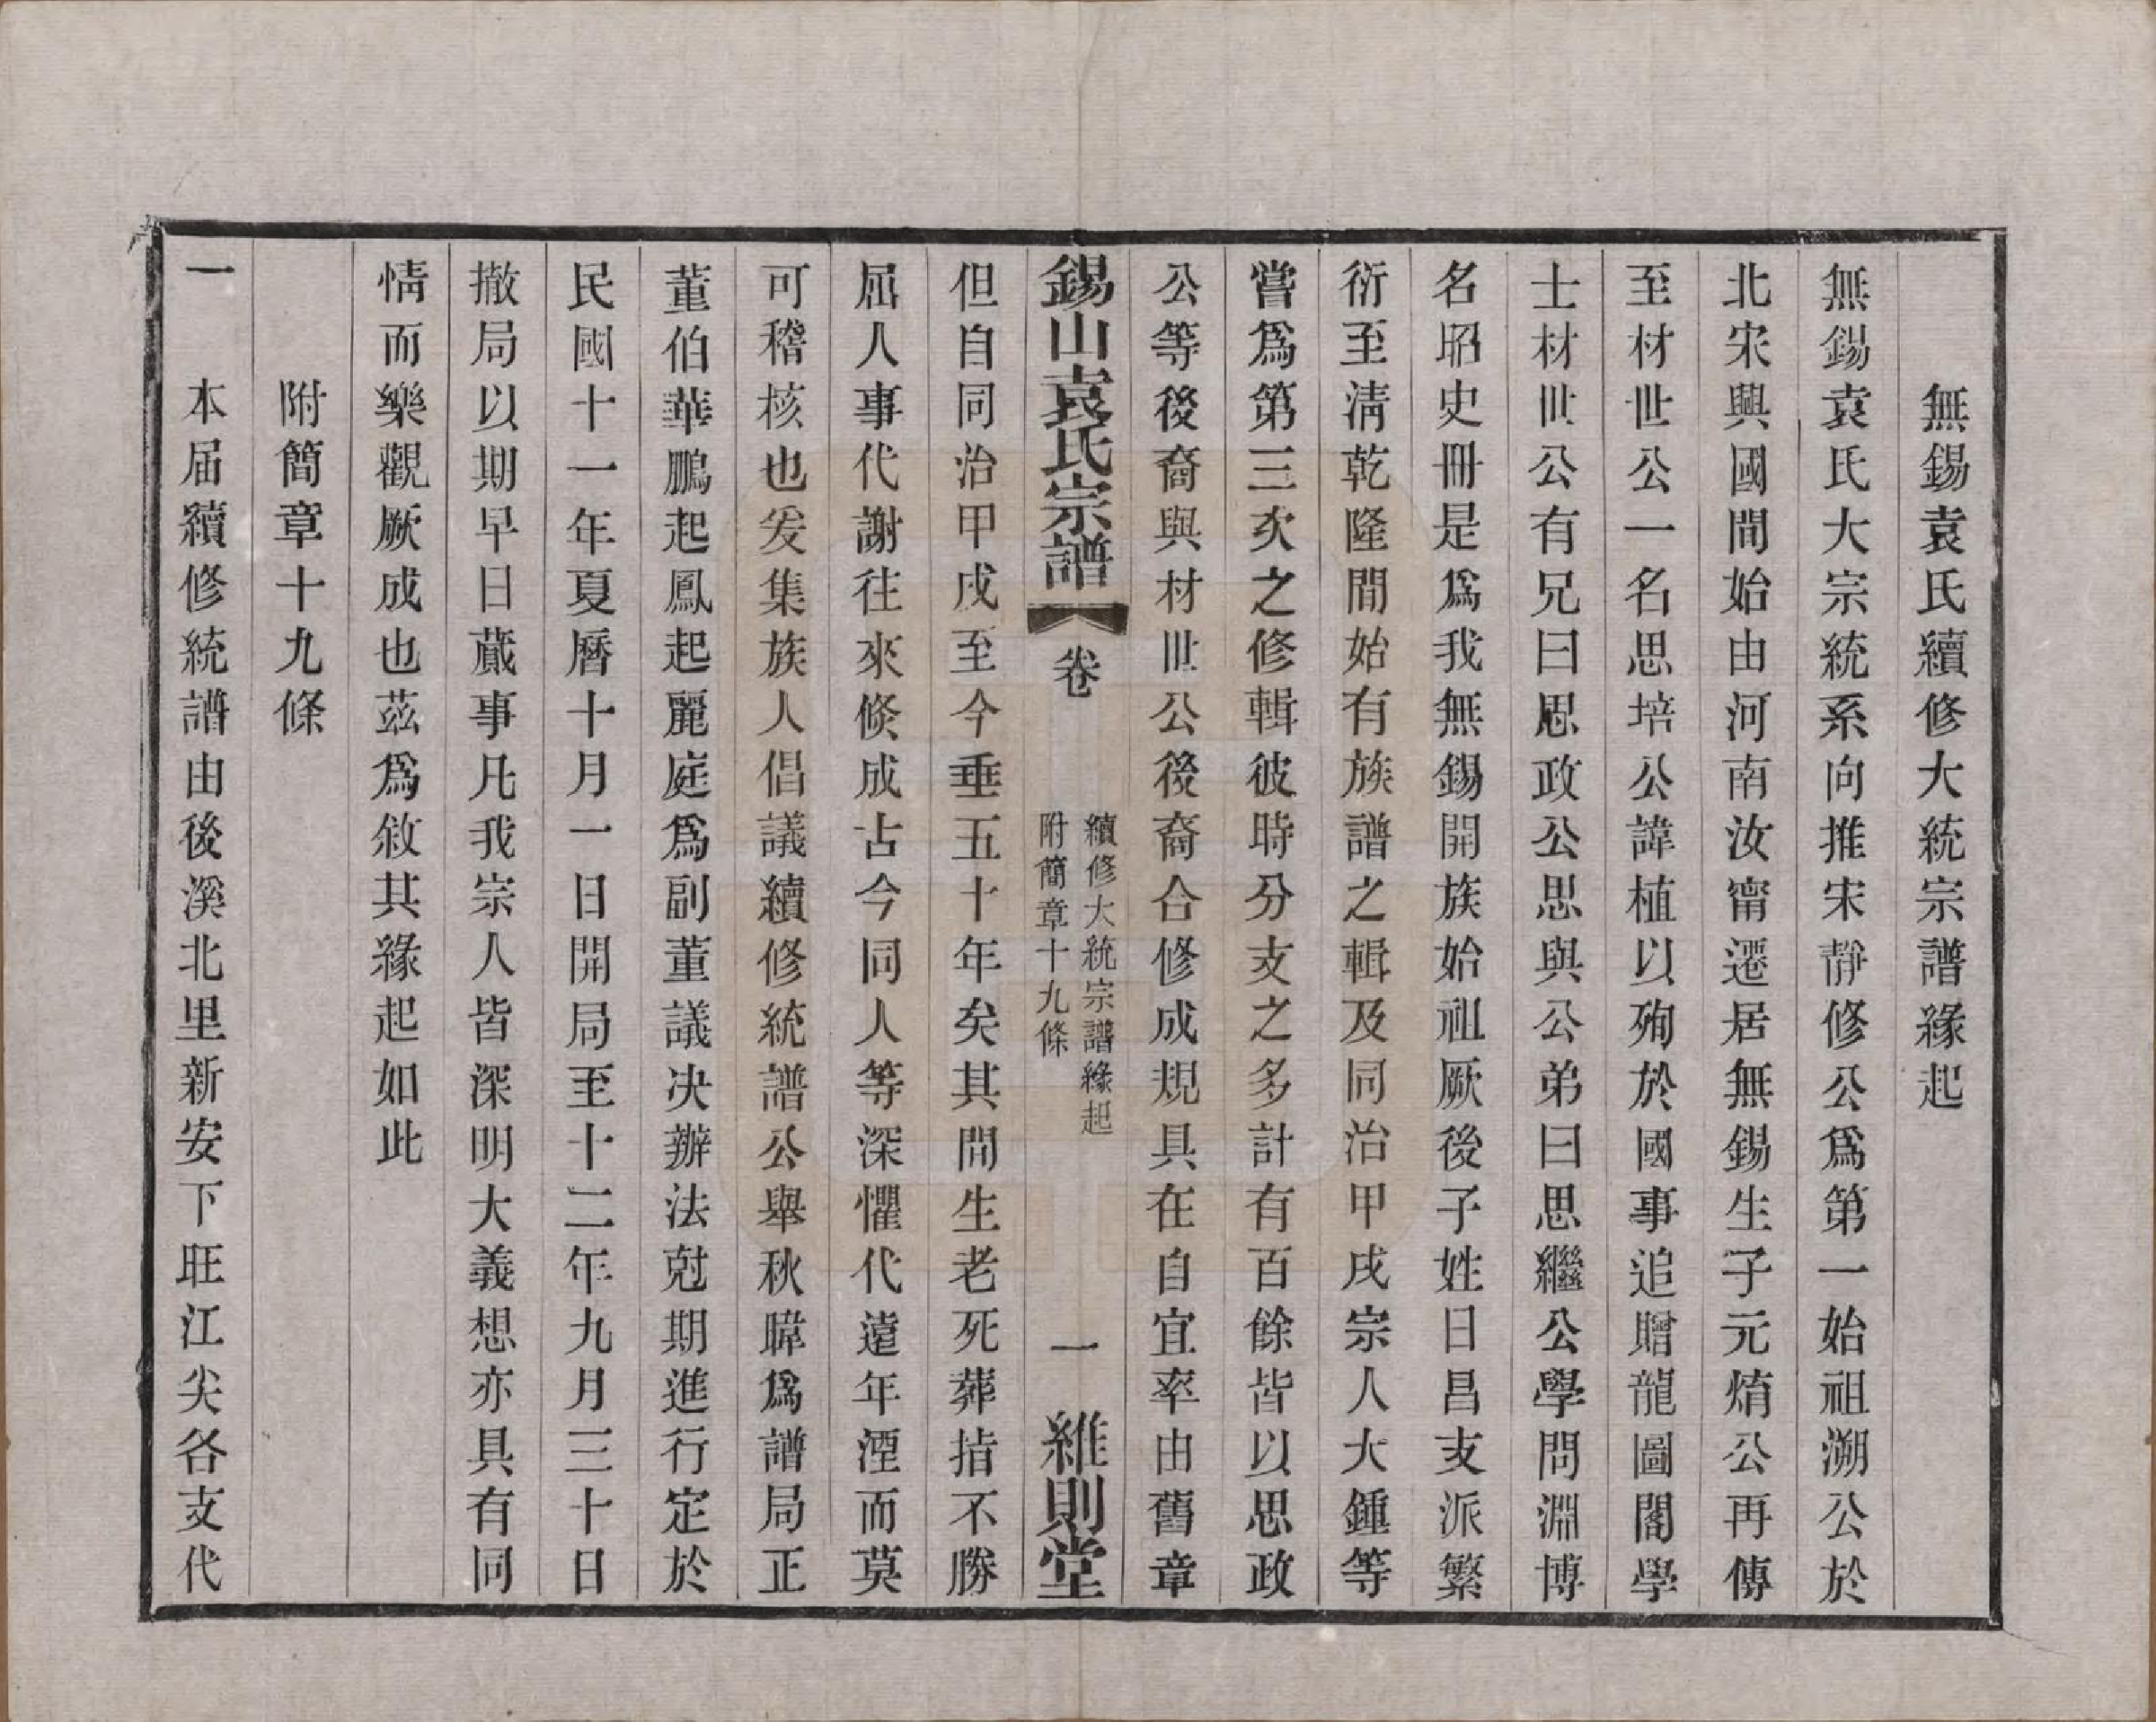 無錫袁氏續修大統宗譜緣起
無錫袁氏大宗統系向推宋靜修公爲第一始祖溯公於
北宋興國間始由河南汝甯遷居無錫生子元焴公再傳
至材世公一名思培公諱植以殉於國事追贈龍圖閣學
士材世公有兄曰思政公思與公弟曰思繼公學問淵博
名昭史冊是爲我無錫開族始祖厥後子姓日昌支派繁
衍至淸乾隆間始有族譜之輯及同治甲戌宗人大鍾等
嘗爲第三次之修輯彼時分支之多計有百餘皆以思政
公等後裔與材世公後裔合修成規具在自宜率由舊章
錫山袁氏宗譜
卷
續修大統宗譜緣起
附簡章十九條
一
維則堂
但自同治甲戌至今垂五十年矣其間生老死葬措不勝
屈人事代謝往來倐成古今同人等深懼代遠年湮而莫
可稽核也爰集族人倡議續修統譜公舉秋暐爲譜局正
董伯華鵬起鳳起麗庭爲副董議决辦法尅期進行定於
民國十一年夏曆十月一日開局至十二年九月三十日
撤局以期早日蕆事凡我宗人皆深明大義想亦具有同
情而樂觀厥成也茲爲敘其緣起如此
附簡章十九條
一　本届續修統譜由後溪北里新安下旺江尖各支代